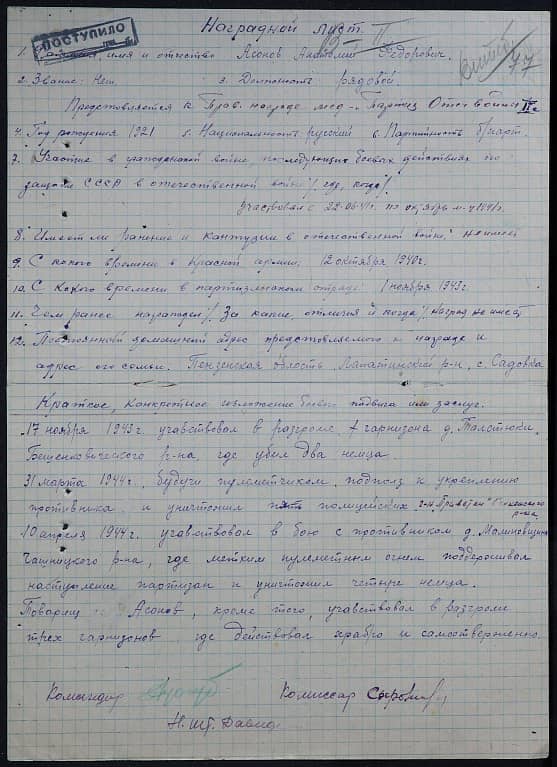 Наградной лист.
ПОСТУПИЛО
1. имя и отчество Асонов Анатолий Федорович.
77
2. Звание: Нет 3. Должность рядовой.
Представляется к Прав. награде мед. "Партиз. Отеч. войны" II ст
4. Год рождения 1921 5. Национальность русский 6. Партийность б/парт.
7. Участие в гражданской войне, последующих боевых действиях по
защите СССР и отечественной войне /где, когда/
участвовал с 22-06-41г. по октябрь м-ц 1941г.
8. Имеет ли ранения и контузии в отечественной войне: не имеет
9. С какого времени в Красной армии: 12 октября 1940г.
10. С какого времени в партизанском отряде: 1 ноября 1943г.
11. Чем ранее награжден /За какие отличия и когда/ Наград не имеет
12. Постоянный домашний адрес представляемого к награде и
адрес его семьи. Пензенская область, Лапатинский р-н, с. Садовка
Краткое, конкретное изложение боевого подвига или заслуг.
17 ноября 1943г. учавствовал в разгроме гарнизона д. Толстюки,
Бешенковического р-на, где убил два немца.
31 марта 1944г., будучи пулеметчиком, подполз к укреплению
противника и уничтожил пять полицейских
р-на.
10 апреля 1944г. учавствовал в бою с противником д. Малиновщина
Чашницкого р-на, где метким пулеметным огнем поддерживал
наступление партизан и уничтожил четыре немца.
Товарищ Асонов, кроме того, учавствовал в разгроме
трех гарнизонов, где действовал храбро и самоотверженно.
Командир Комиссар
Н. шт. Давид